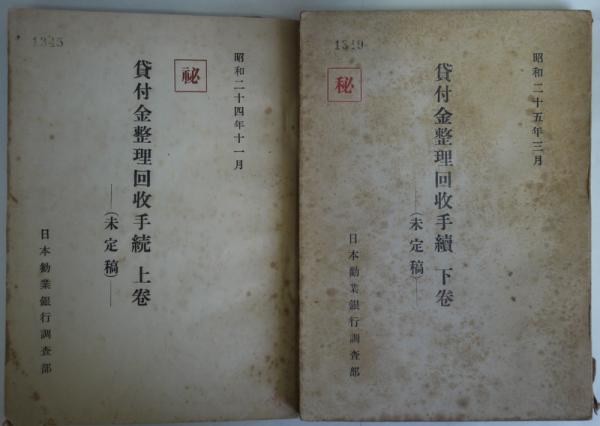 1345
昭和二十四年十一月
祕
貸付金整理回收手続 上卷
―(未定稿)―
日本勧業銀行調査部
1349
昭和二十五年三月
秘
貸付金整理回收手續 下卷
―(未定稿)―
日本勧業銀行調査部